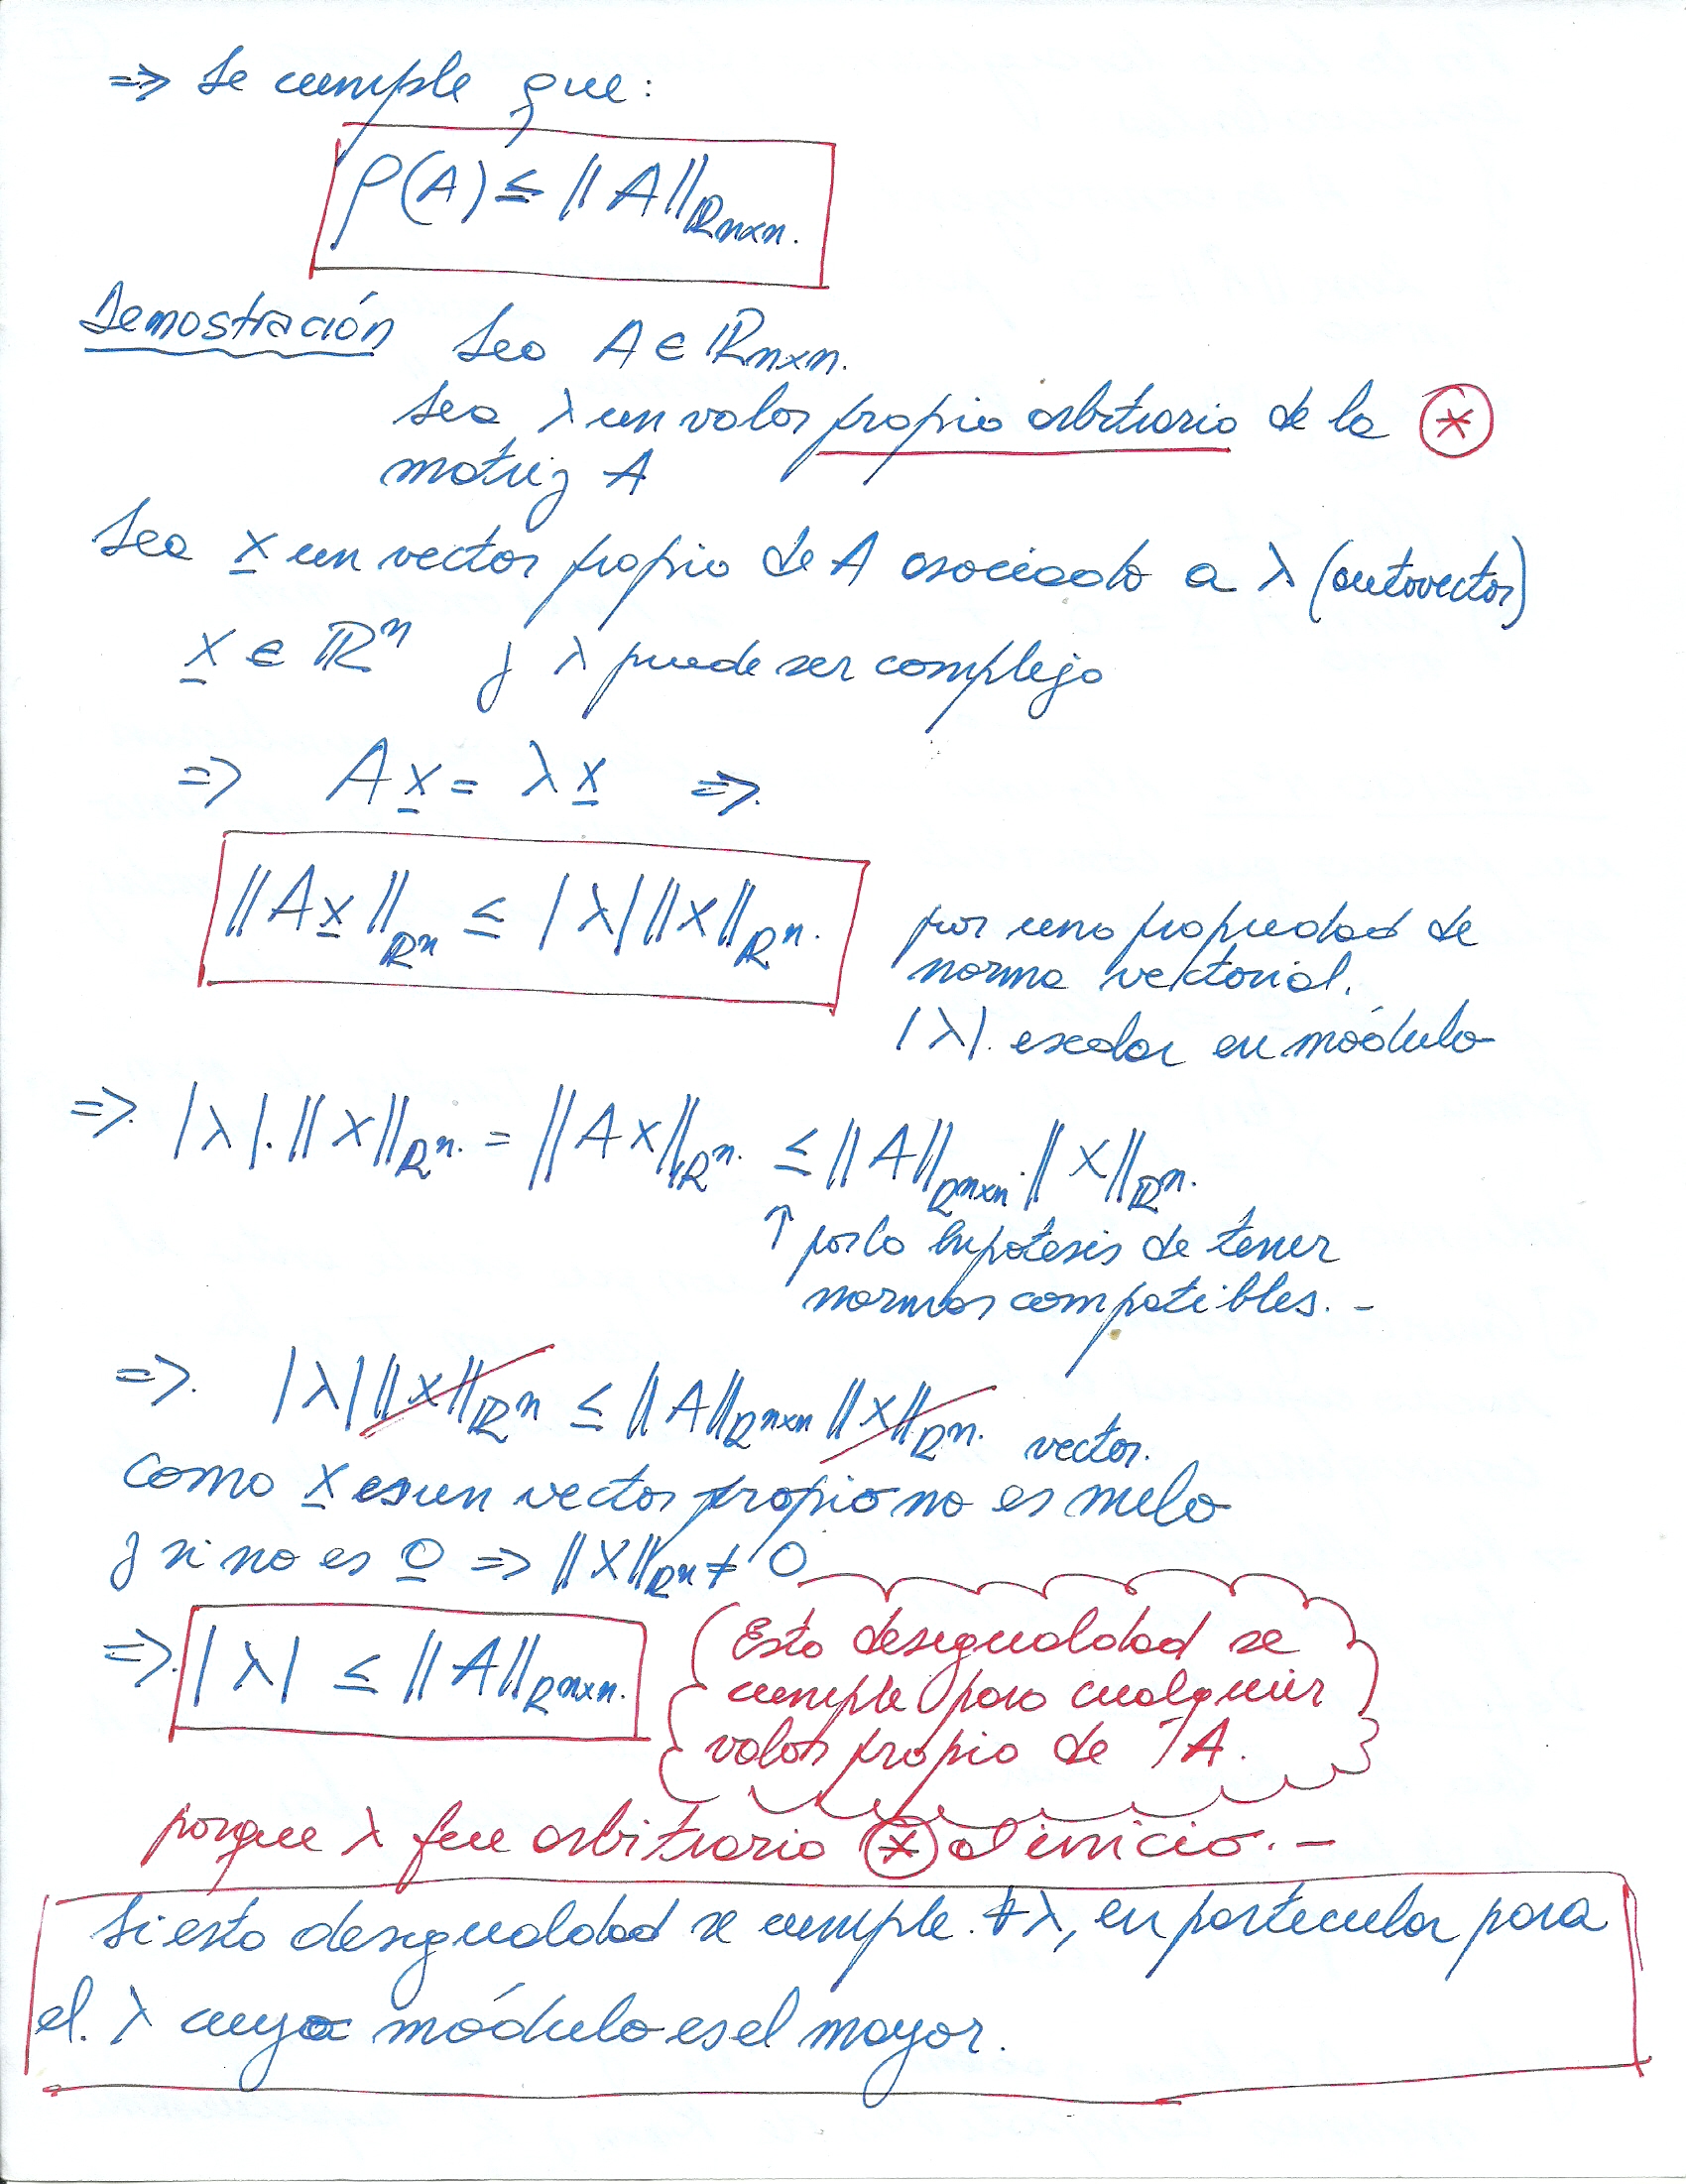 => Se cumple que:
ρ(A) ≤ ||A||ℝnxn.
Demostración Sea A ∈ ℝnxn.
Sea λ un valor propio arbitrario de la (*)
matriz A
Sea x un vector propio de A asociado a λ (autovector)
x ∈ ℝⁿ y λ puede ser complejo
=> Ax = λx =>.
||Ax||ℝⁿ ≤ |λ| ||x||ℝⁿ.
por una propiedad de
norma vectorial.
|λ|. escalar en módulo
=>. |λ|.||x||ℝⁿ. = ||Ax||ℝⁿ. ≤ ||A||ℝnxn.||x||ℝⁿ.
↑ por la hipótesis de tener
normas compatibles. -
=>. |λ| ||x||ℝⁿ ≤ ||A||ℝnxn ||x||ℝⁿ. vector.
como x es un vector propio no es nulo
y si no es 0 => ||x||ℝⁿ ≠ 0
=>. |λ| ≤ ||A||ℝnxn.
(Esta desigualdad se
cumple para cualquier
valor propio de A.
porque λ fue arbitrario (*) al inicio. -
Si esta desigualdad se cumple. ∀λ, en particular para
el. λ cuyo módulo es el mayor.